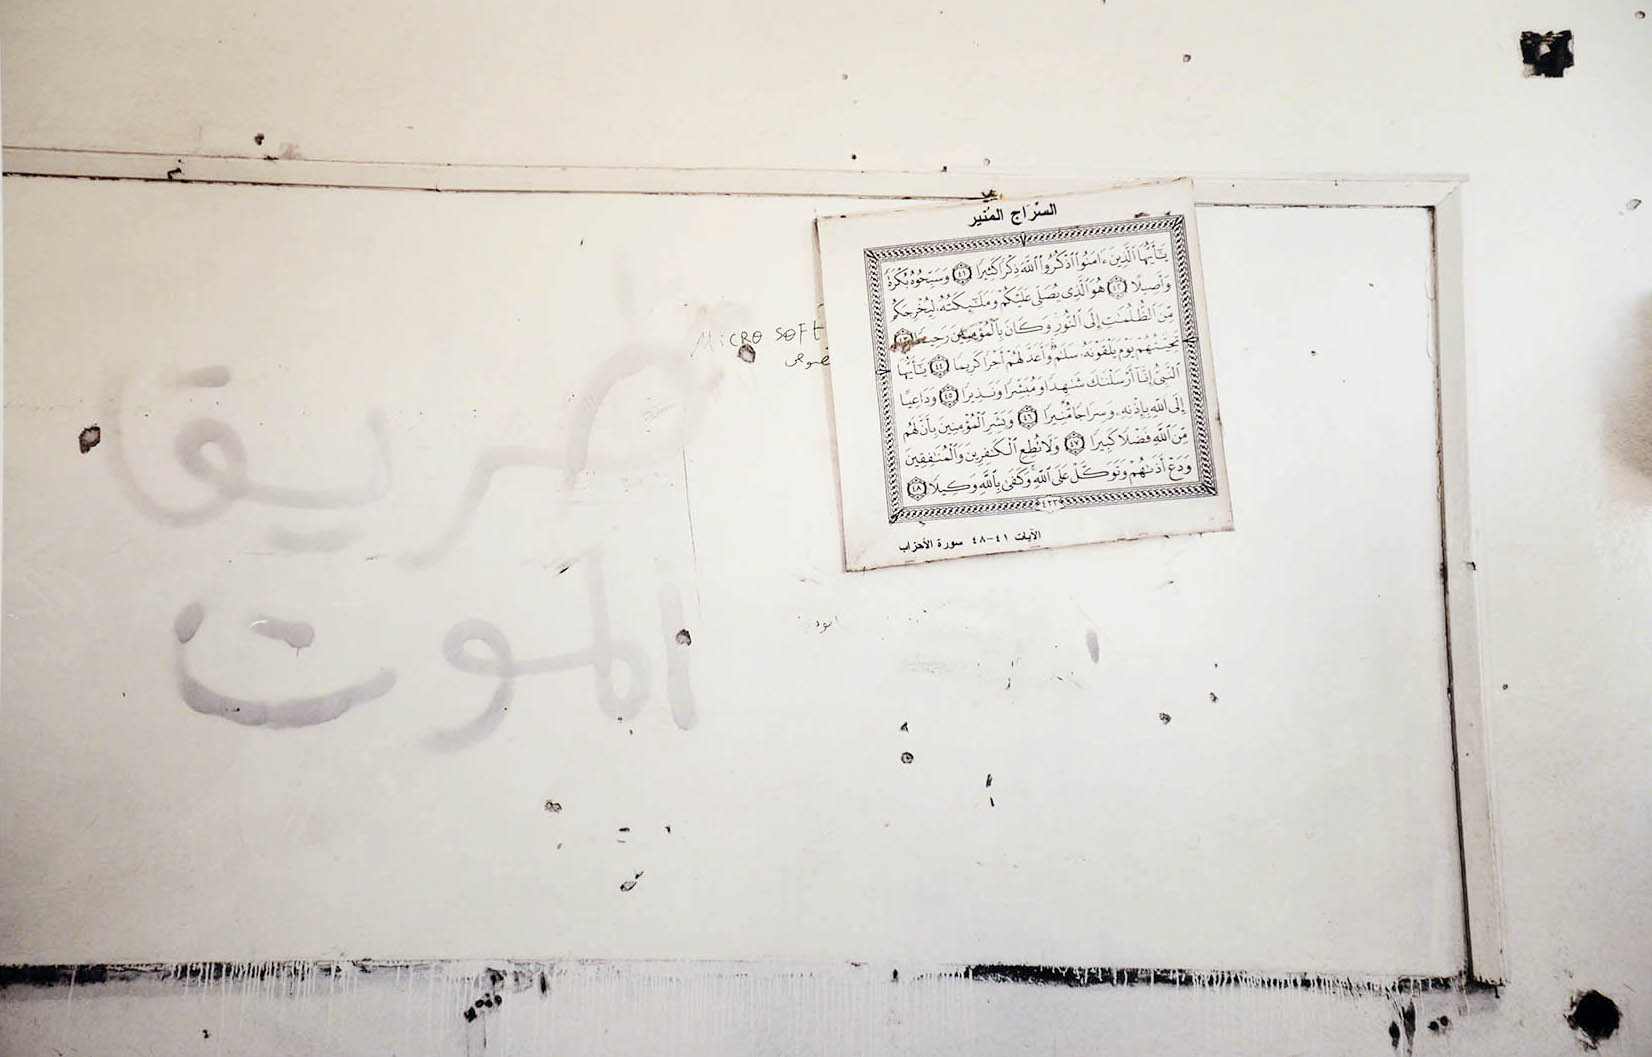 السِّرَاج المُنير
يَٰٓأَيُّهَا ٱلَّذِينَ ءَامَنُوا۟ ٱذْكُرُوا۟ ٱللَّهَ ذِكْرًا كَثِيرًا ٤١ وَسَبِّحُوهُ بُكْرَةً
وَأَصِيلًا ٤٢ هُوَ ٱلَّذِى يُصَلِّى عَلَيْكُمْ وَمَلَٰٓئِكَتُهُۥ لِيُخْرِجَكُم
مِّنَ ٱلظُّلُمَٰتِ إِلَى ٱلنُّورِ وَكَانَ بِٱلْمُؤْمِنِينَ رَحِيمًا ٤٣
تَحِيَّتُهُمْ يَوْمَ يَلْقَوْنَهُۥ سَلَٰمٌ وَأَعَدَّ لَهُمْ أَجْرًا كَرِيمًا ٤٤ يَٰٓأَيُّهَا
ٱلنَّبِىُّ إِنَّآ أَرْسَلْنَٰكَ شَٰهِدًا وَمُبَشِّرًا وَنَذِيرًا ٤٥ وَدَاعِيًا
إِلَى ٱللَّهِ بِإِذْنِهِۦ وَسِرَاجًا مُّنِيرًا ٤٦ وَبَشِّرِ ٱلْمُؤْمِنِينَ بِأَنَّ لَهُم
مِّنَ ٱللَّهِ فَضْلًا كَبِيرًا ٤٧ وَلَا تُطِعِ ٱلْكَٰفِرِينَ وَٱلْمُنَٰفِقِينَ
وَدَعْ أَذَىٰهُمْ وَتَوَكَّلْ عَلَى ٱللَّهِ وَكَفَىٰ بِٱللَّهِ وَكِيلًا ٤٨
٤٢٣
الآيات ٤١-٤٨ سورة الأحزاب
MICRO SOFT
طريق
الموت